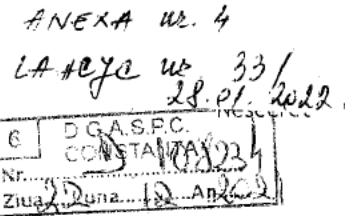 ANEXA nr. 4
LA HCJC nr 33/
28.01.2022.
6 D.G.A.S.P.C.
CONSTANTA
Nr.
Ziua 22 Luna 12 An 2021